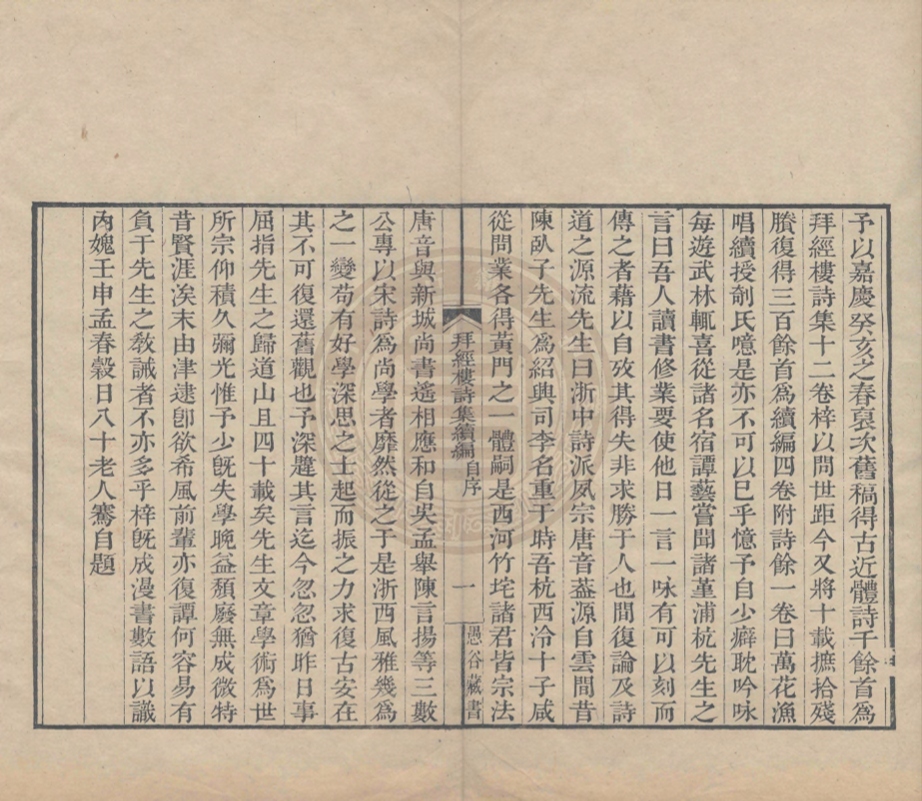 予以嘉慶癸亥之春裒次舊稿得古近體詩千餘首爲
拜經樓詩集十二卷梓以問世距今又將十載摭拾殘
賸復得三百餘首爲續編四卷附詩餘一卷曰萬花漁
唱續授剞氏噫是亦不可以已乎憶予自少癖耽吟咏
每遊武林輒喜從諸名宿譚藝嘗聞諸堇浦杭先生之
言曰吾人讀書修業要使他日一言一咏有可以刻而
傳之者藉以自攷其得失非求勝于人也間復論及詩
道之源流先生曰浙中詩派夙宗唐音葢源自雲間昔
陳臥子先生爲紹興司李名重于時吾杭西泠十子咸
從問業各得黃門之一體嗣是西河竹垞諸君皆宗法
拜經樓詩集續編自序
一
愚谷藏書
唐音與新城尚書遙相應和自吳孟舉陳言揚等三數
公專以宋詩爲尚學者靡然從之于是浙西風雅幾爲
之一變苟有好學深思之士起而振之力求復古安在
其不可復還舊觀也予深韙其言迄今忽忽猶昨日事
屈指先生之歸道山且四十載矣先生文章學術爲世
所宗仰積久彌光惟予少旣失學晚益頹廢無成微特
昔賢涯涘末由津逮卽欲希風前輩亦復譚何容易有
負于先生之敎誡者不亦多乎梓旣成漫書數語以識
內媿壬申孟春穀日八十老人騫自題